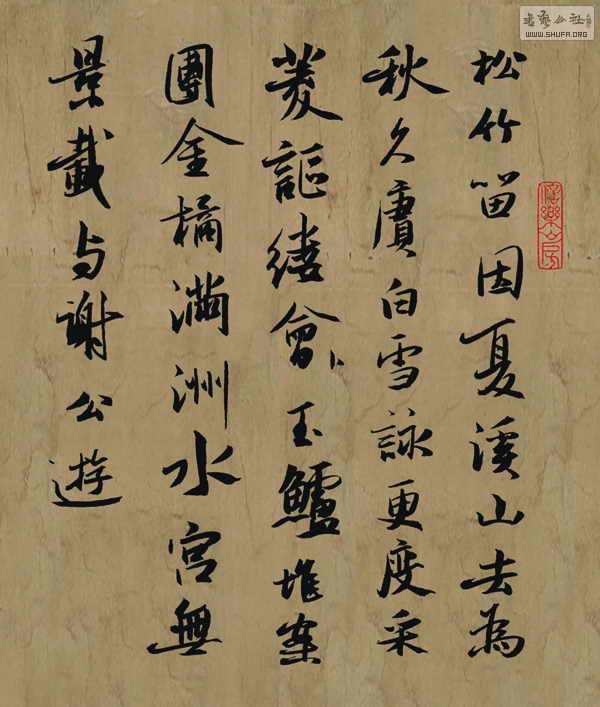 書藝公社
WWW.SHUFA.ORG
松竹留因夏溪山去為
秋久賡白雪詠更度采
菱謳縷會玉鱸堆案
團金橘滿洲水宮無
景載与謝公遊